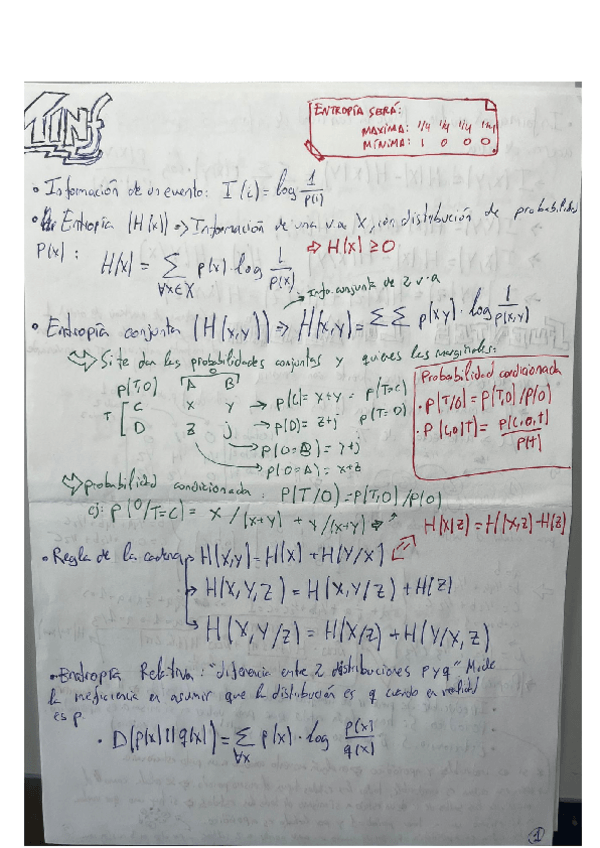 TINF
ENTROPÍA SERÁ:
MAXIMA: 1/4 1/4 1/4 1/4
MÍNIMA: 1 0 0 0
• Información de un evento: I(i) = log 1/p(i)
• Entropía (H(x)) => Información de una v.a X, con distribución de probabilidades
p(x) :
=> H(x) ≥ 0
H(x) = ∑ ∀x∈X p(x) · log 1/p(x)
→ Info. conjunta de 2 v.a
• Entropía conjunta (H(x,y)) => H(x,y) = ∑∑ p(xy) · log 1/p(x,y)
=> Si te dan las probabilidades conjuntas y quieres las marginales:
p(T,O) A B
T [ C x y → p(C) = x+y = p(T=C)
D z j → p(D) = z+j p(T=D)
→ p(O=B) = y+j
→ p(O=A) = x+z
Probabilidad condicionada
• p(T/O) = p(T,O)/p(O)
• p(C,O|T) = p(C,O,T)/p(T)
=> probabilidad condicionada : P(T/O) = p(T,O)/p(O)
ej: p(O/T=C) = x/(x+y) + y/(x+y) =>
H(X|Z) = H(X,Z) - H(Z)
• Regla de la cadena → H(X,Y) = H(X) + H(Y/X)
→ H(X,Y,Z) = H(X,Y/Z) + H(Z)
→ H(X,Y/Z) = H(X/Z) + H(Y/X,Z)
• Entropía Relativa: "diferencia entre 2 distribuciones p y q" Mide
la ineficiencia en asumir que la distribución es q cuando en realidad
es p.
• D(p(x)||q(x)) = ∑ ∀x p(x) · log p(x)/q(x)
1